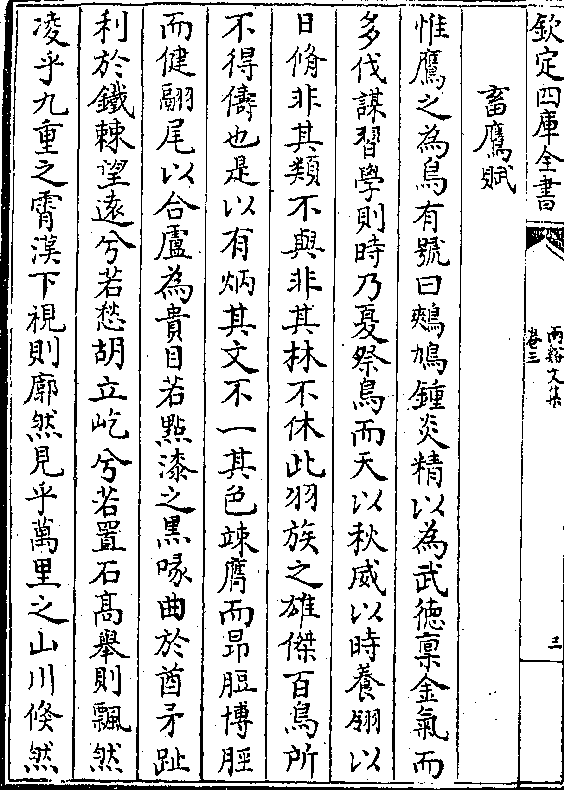 欽定四庫全書
兩谿文集
卷三
三
畜鷹賦
惟鷹之為鳥有號曰鷞鳩鍾炎精以為武德稟金氣而
多伐謀習學則時乃夏祭鳥而天以秋威以時養翎以
日脩非其類不與非其林不休此羽族之雄傑百鳥所
不得儔也是以有炳其文不一其色竦膺而昂脰博脛
而健翮尾以合盧為貴目若點漆之黑喙曲於酋矛趾
利於鐵棘望遠兮若愁胡立屹兮若置石髙舉則飄然
凌乎九重之霄漢下視則廓然見乎萬里之山川倐然